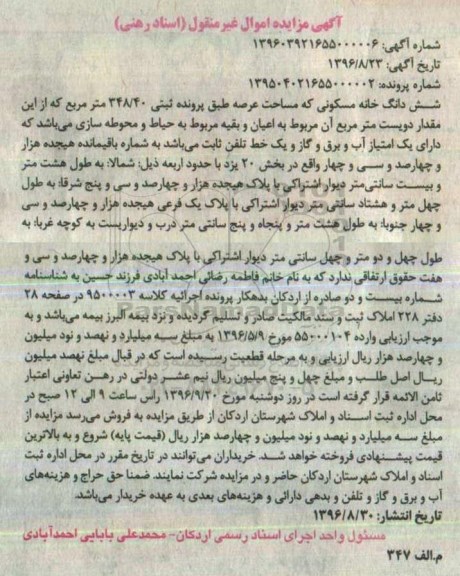 آگهی مزایده اموال غیرمنقول (اسناد رهنی)
شماره آگهی: ۱۳۹۶۰۳۹۲۱۶۵۵۰۰۰۰۰۶
تاریخ آگهی: ۱۳۹۶/۸/۲۳
شماره پرونده: ۱۳۹۵۰۴۰۲۱۶۵۵۰۰۰۰۰۲
شش دانگ خانه مسکونی که مساحت عرصه طبق پرونده ثبتی ۳۴۸/۴۰ متر مربع که از این
مقدار دویست متر مربع آن مربوط به اعیان و بقیه مربوط به حیاط و محوطه سازی می‌باشد که
دارای یک امتیاز آب و برق و گاز و یک خط تلفن ثابت می‌باشد به شماره باقیمانده هیجده هزار
و چهارصد و سی و چهار واقع در بخش ۲۰ یزد با حدود اربعه ذیل: شمالا: به طول هشت متر
و بیست سانتی‌متر دیوار اشتراکی با پلاک هیجده هزار و چهارصد و سی و پنج شرقا: به طول
چهل متر و هشتاد سانتی متر دیوار اشتراکی با پلاک یک فرعی هیجده هزار و چهارصد و سی
و چهار جنوبا: به طول هشت متر و پنجاه و پنج سانتی متر درب و دیواریست به کوچه غربا: به
طول چهل و دو متر و چهل سانتی متر دیوار اشتراکی با پلاک هیجده هزار و چهارصد و سی و
هفت حقوق ارتفاقی ندارد که به نام خانم فاطمه رضائی احمد آبادی فرزند حسین به شناسنامه
شماره بیست و دو صادره از اردکان بدهکار پرونده اجرائیه کلاسه ۹۵۰۰۰۰۳ در صفحه ۲۸
دفتر ۲۲۸ املاک ثبت و سند مالکیت صادر و تسلیم گردیده و نزد بیمه البرز بیمه می‌باشد و به
موجب ارزیابی وارده ۵۵۰۰۰۱۰۴ مورخ ۱۳۹۶/۵/۹ به مبلغ سه میلیارد و نهصد و نود میلیون
و چهارصد هزار ریال ارزیابی و به مرحله قطعیت رسیده است که در قبال مبلغ نهصد میلیون
ریال اصل طلب و مبلغ چهل و پنج میلیون ریال نیم عشر دولتی در رهن تعاونی اعتبار
ثامن الائمه قرار گرفته است در روز دوشنبه مورخ ۱۳۹۶/۹/۲۰ رأس ساعت ۹ الی ۱۲ صبح در
محل اداره ثبت اسناد و املاک شهرستان اردکان از طریق مزایده به فروش می‌رسد مزایده از
مبلغ سه میلیارد و نهصد و نود میلیون و چهارصد هزار ریال (قیمت پایه) شروع و به بالاترین
قیمت پیشنهادی فروخته خواهد شد. خریداران می‌توانند در تاریخ مقرر در محل اداره ثبت
اسناد و املاک شهرستان اردکان حاضر و در مزایده شرکت نمایند. ضمنا حق حراج و هزینه‌های
آب و برق و گاز و تلفن و بدهی دارائی و هزینه‌های بعدی به عهده خریدار می‌باشد.
تاریخ انتشار: ۱۳۹۶/۸/۳۰
مسئول واحد اجرای اسناد رسمی اردکان- محمدعلی بابایی احمدآبادی
م.الف ۳۴۷